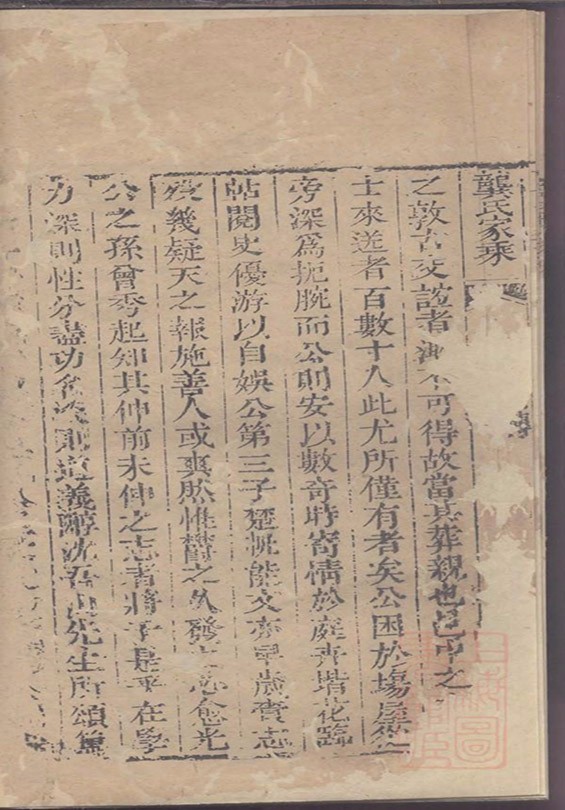 龔氏家乘
之敦古交誼者 不可得故當其葬親也邑中之
士來送者百數十人此尤所僅有者矣公困於場屋
旁深為扼腕而公則安以數奇時寄情於庭 堦花臨
帖閱史優游以自娛公第三子楚 能文亦早歲賫志
歿幾疑天之報施善人或爽然惟鬱之久發 愈光
公之孫曾秀起知其仲前未伸之志者將于是乎在學
力深則性分盡功名淡則道義 先生所頌